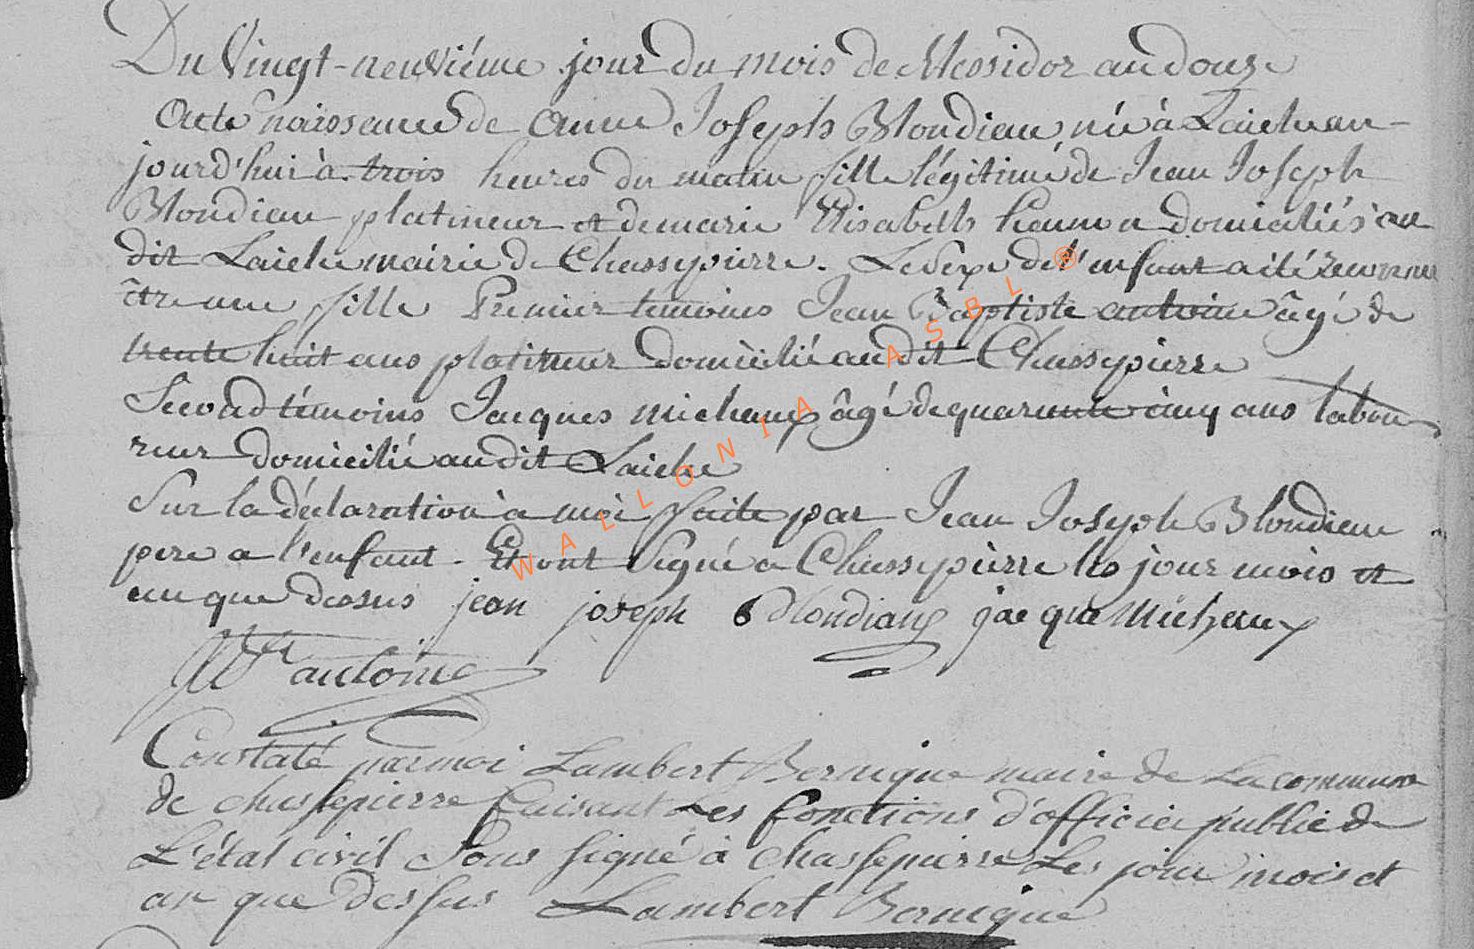 Du Vingt-neuviéme jour du mois de Messidor an douze
Acte naissance de anne Joseph Blondieau née à Laiche au-
jourd'hui à trois heures du matin fille légitime de Jean Joseph
Blondieau platineur et de marie Elisabeth domiciliés au
dit Laiche mairie de Chassepierre. Le sexe de l'enfant a été reconnu
être une fille Premier temoins Jean Baptiste antoine âgé de
trente huit ans platineur domicilié audit Chassepierre
Second témoins Jacques michaux âgé de quarante cinq ans labou
reur domicilié audit Laiche
Sur la déclaration à moi faite par Jean Joseph Blondieau
pere a l'enfant. Et ont Signé a Chassepierre les jour mois et
an que dessus jean joseph Blondiaux jacque Michaux
antoine
Constaté par moi Lambert Bernique maire de La commune
de chassepierre faisant Les fonctions d'officier public de
L'état civil Sous signé à chassepierre Les jour mois et
an que dessus Lambert Bernique
WALLONIA ASBL ®